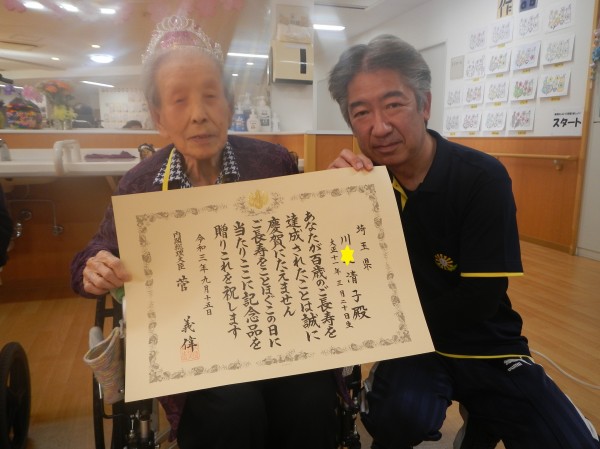 埼玉県
川 清子殿
大正十一年三月二十日生
あなたが百歳のご長寿を
達成されたことは誠に
慶賀にたえません
ご長寿をことほぐこの日に
当たりここに記念品を
贈りこれを祝します
令和三年九月十五日
内閣総理大臣 菅 義偉
作品
スタート